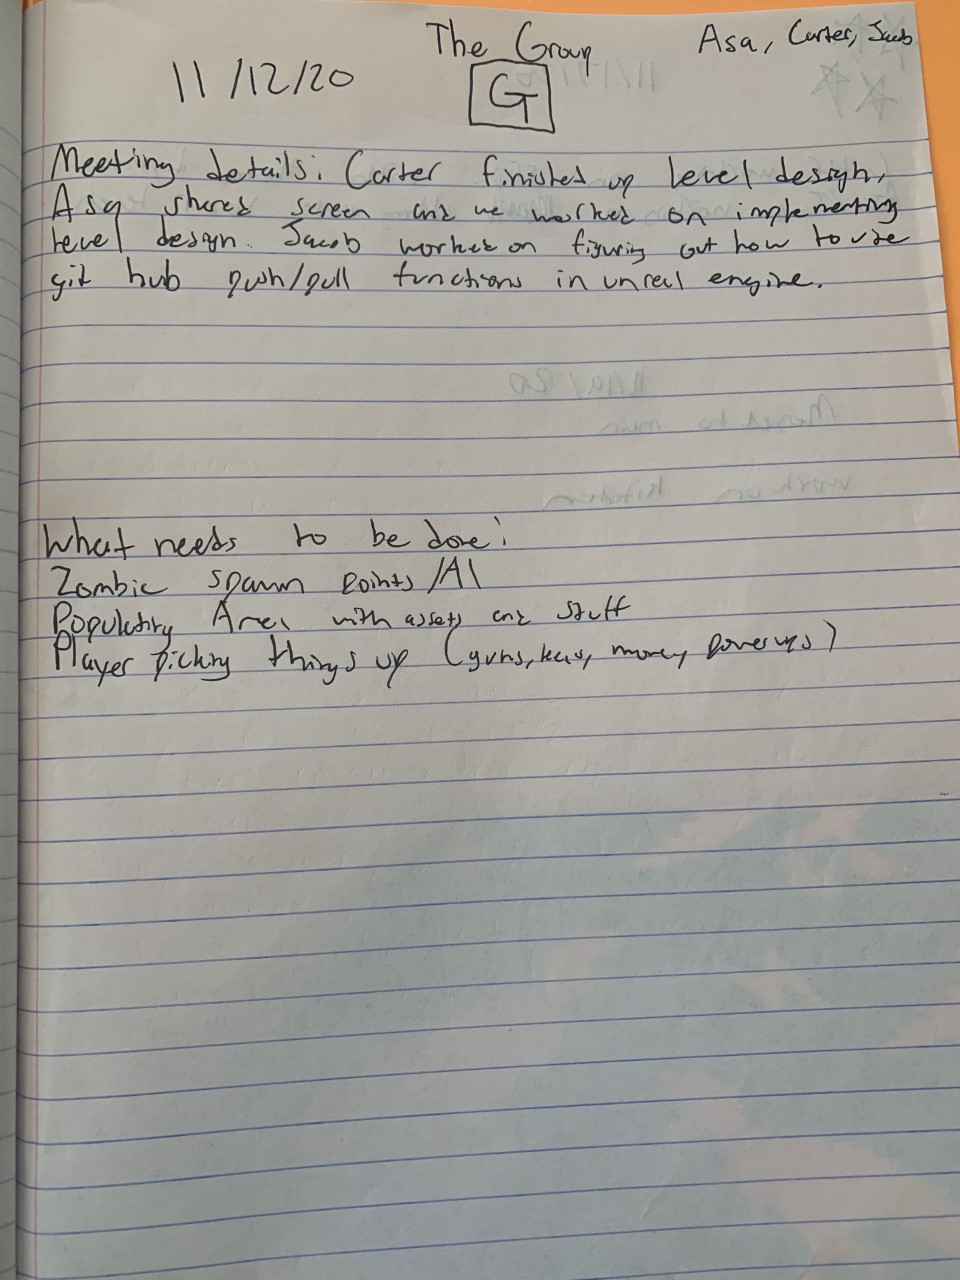 The Group
Asa, Carter, Jacob
11/12/20
G
Meeting details: Carter finished up level design,
Asa shared screen and we worked on implementing
level design. Jacob worked on figuring out how to use
git hub push/pull functions in unreal engine.
What needs to be done:
Zombie spawn points/AI
Populating Area with assets and stuff
Player picking things up (guns, keys, money, powerups)
11/19/20
work on kitchen